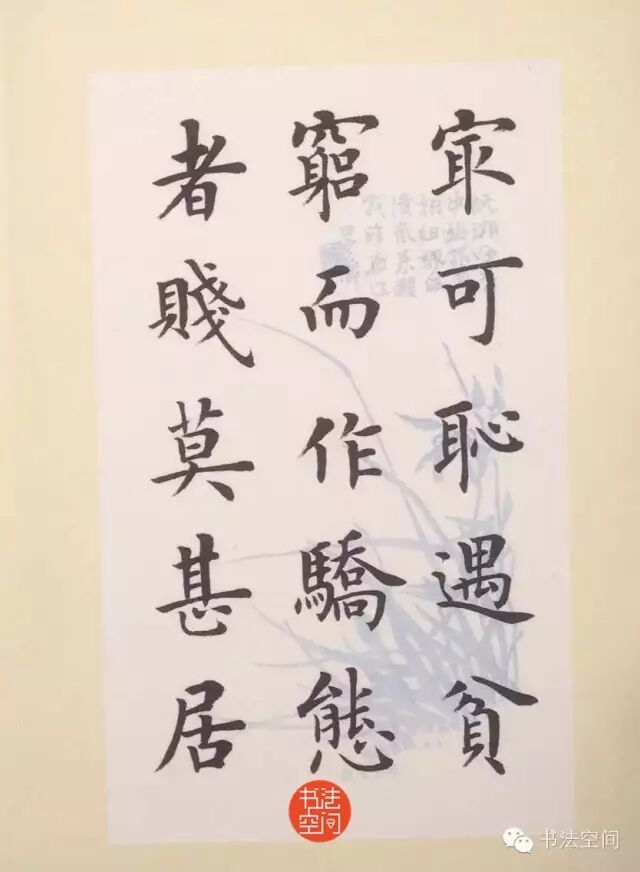 冣可恥遇貧
窮而作驕態
者賤莫甚居
书法
空间
书法空间